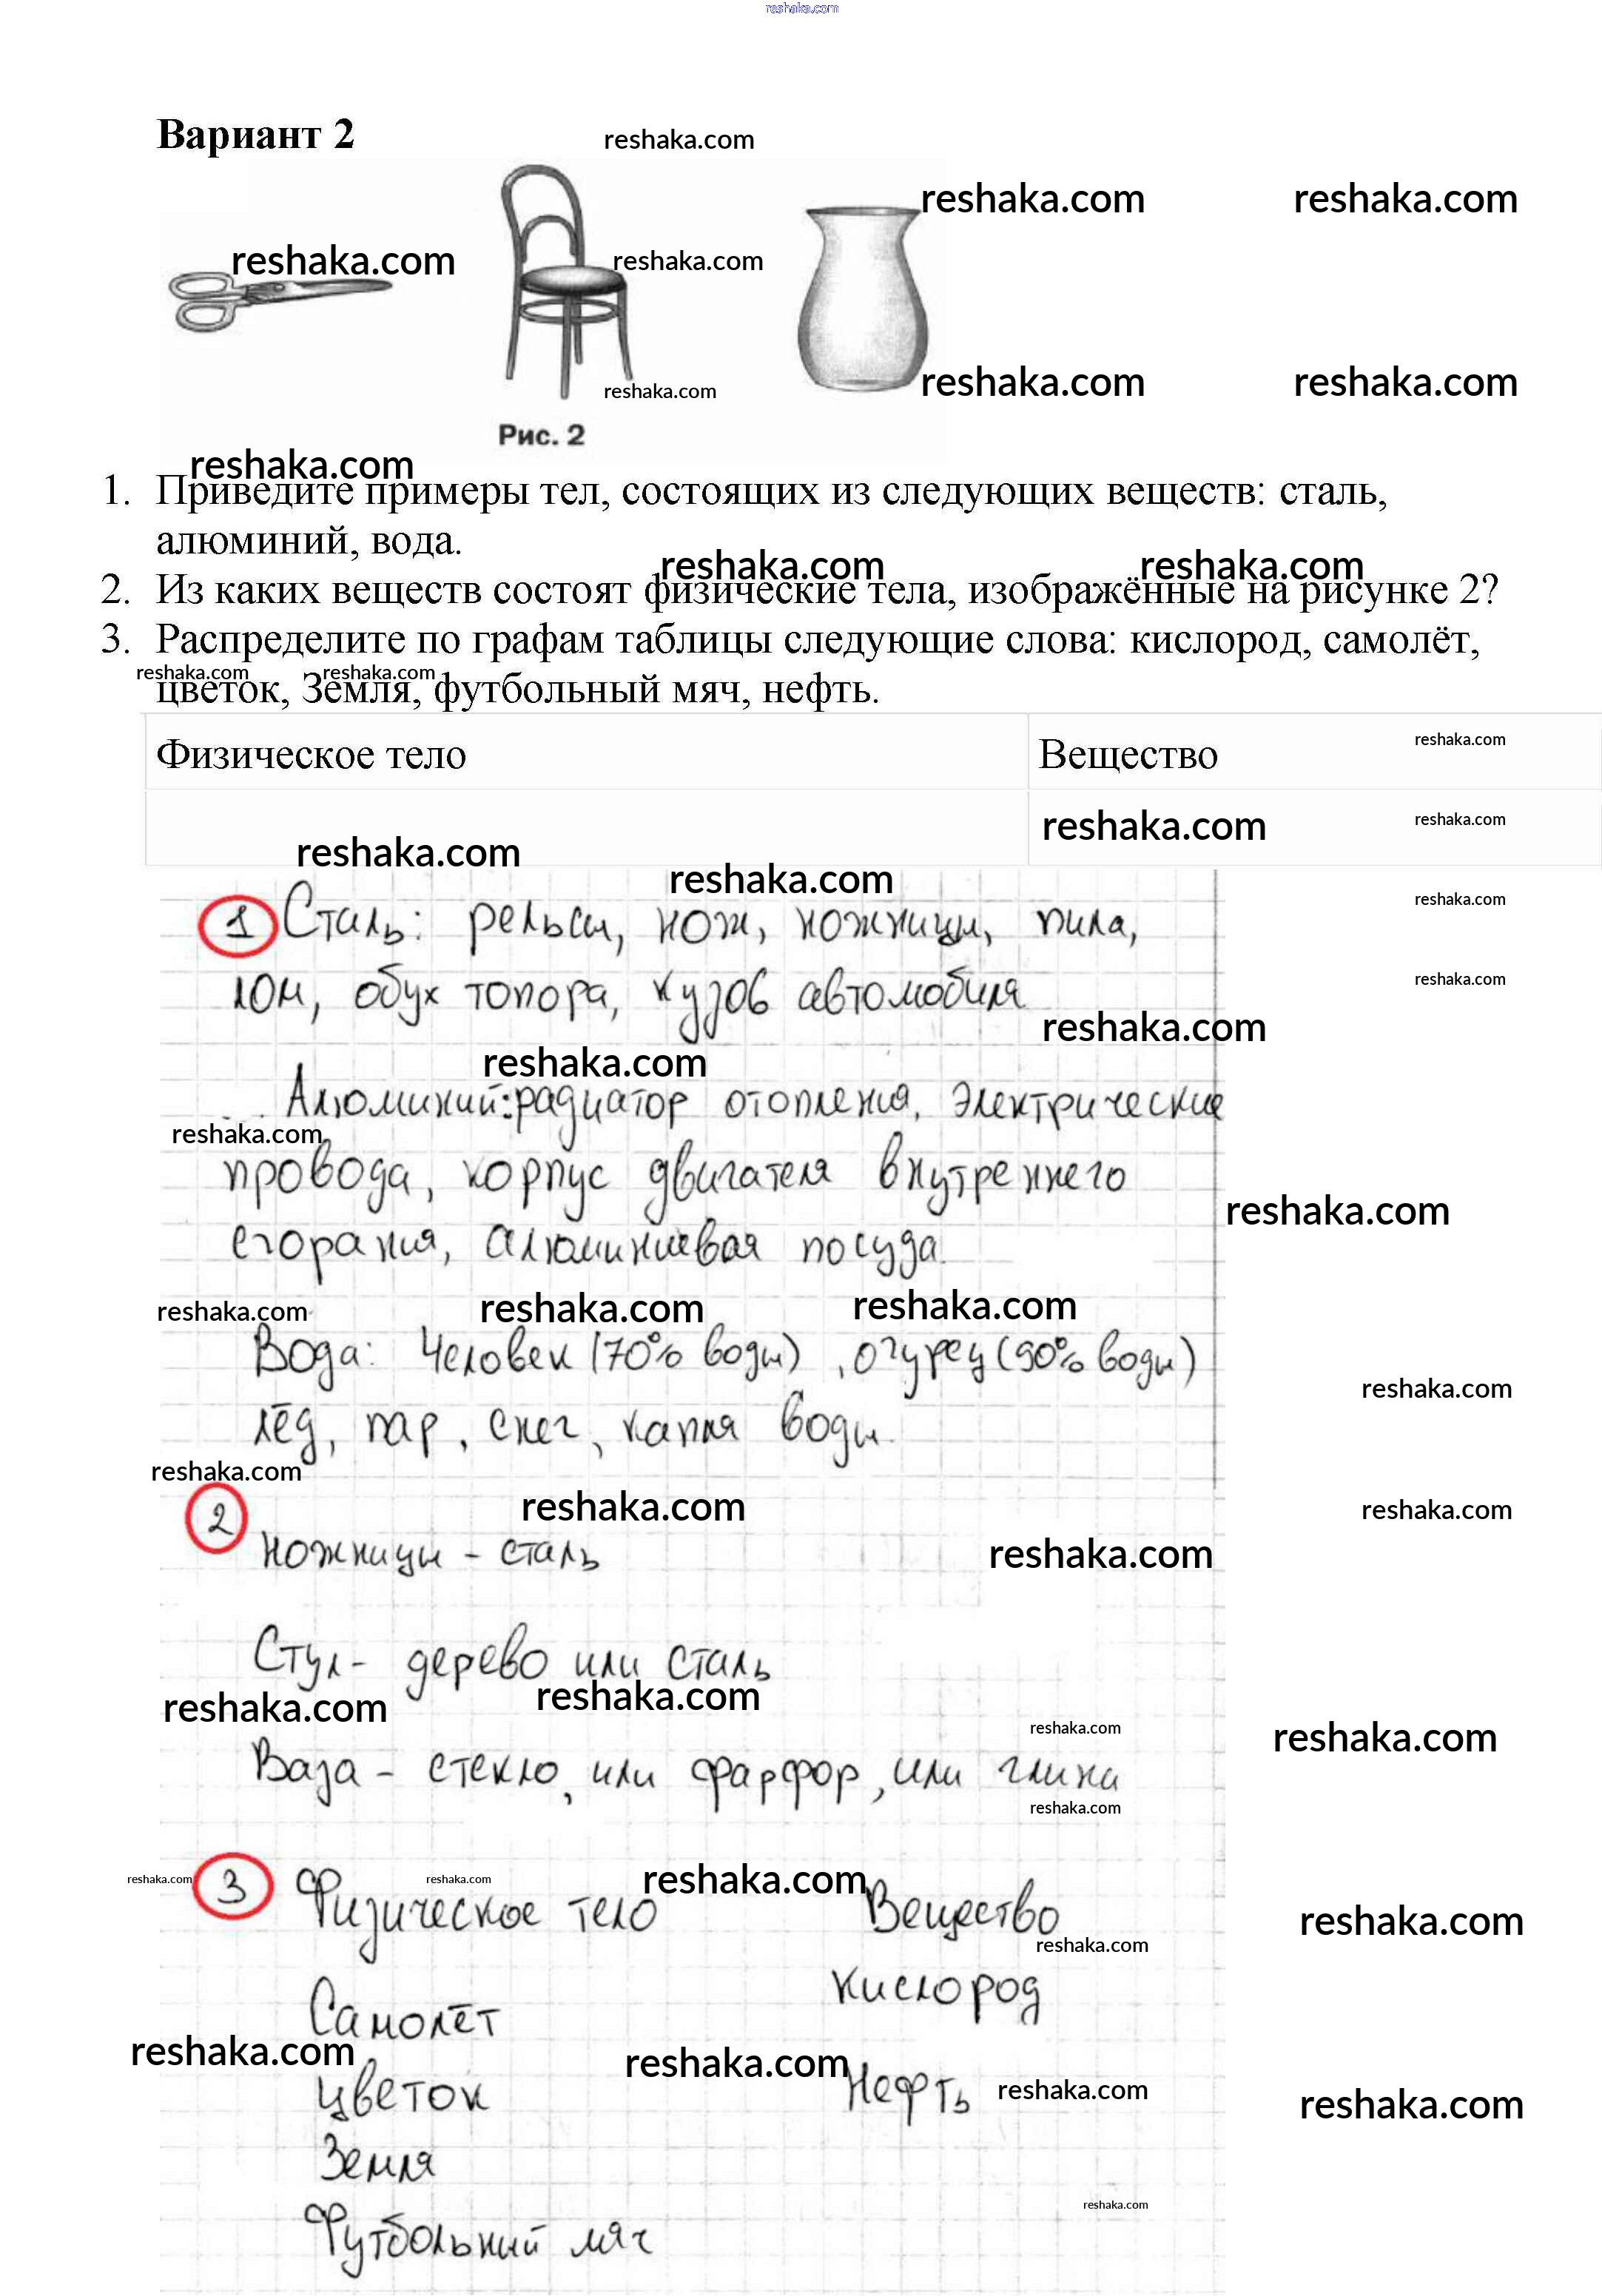 reshaka.com
Вариант 2
reshaka.com
reshaka.com reshaka.com
reshaka.com reshaka.com
reshaka.com reshaka.com
reshaka.com
Рис. 2
reshaka.com
1. Приведите примеры тел, состоящих из следующих веществ: сталь,
алюминий, вода.
reshaka.com reshaka.com
2. Из каких веществ состоят физические тела, изображённые на рисунке 2?
3. Распределите по графам таблицы следующие слова: кислород, самолёт,
reshaka.com reshaka.com
цветок, Земля, футбольный мяч, нефть.
Физическое тело Вещество reshaka.com
reshaka.com reshaka.com
reshaka.com
reshaka.com
reshaka.com
1 Сталь: рельсы, нож, ножницы, пила,
лом, обух топора, кузов автомобиля
reshaka.com
reshaka.com
reshaka.com
Алюминий: радиатор отопления, электрические
reshaka.com
провода, корпус двигателя внутреннего
reshaka.com
сгорания, алюминиевая посуда.
reshaka.com reshaka.com reshaka.com
Вода: Человек (70% воды), огурец (90% воды)
reshaka.com
лёд, пар, снег, капля воды.
reshaka.com
reshaka.com reshaka.com
2
Ножницы - сталь
reshaka.com
Стул - дерево или сталь
reshaka.com reshaka.com
reshaka.com reshaka.com
Ваза - стекло, или фарфор, или глина
reshaka.com
reshaka.com reshaka.com reshaka.com
3 Физическое тело Вещество
reshaka.com
reshaka.com
Самолёт кислород
reshaka.com reshaka.com
цветок Нефть
reshaka.com reshaka.com
Земля
reshaka.com
Футбольный мяч